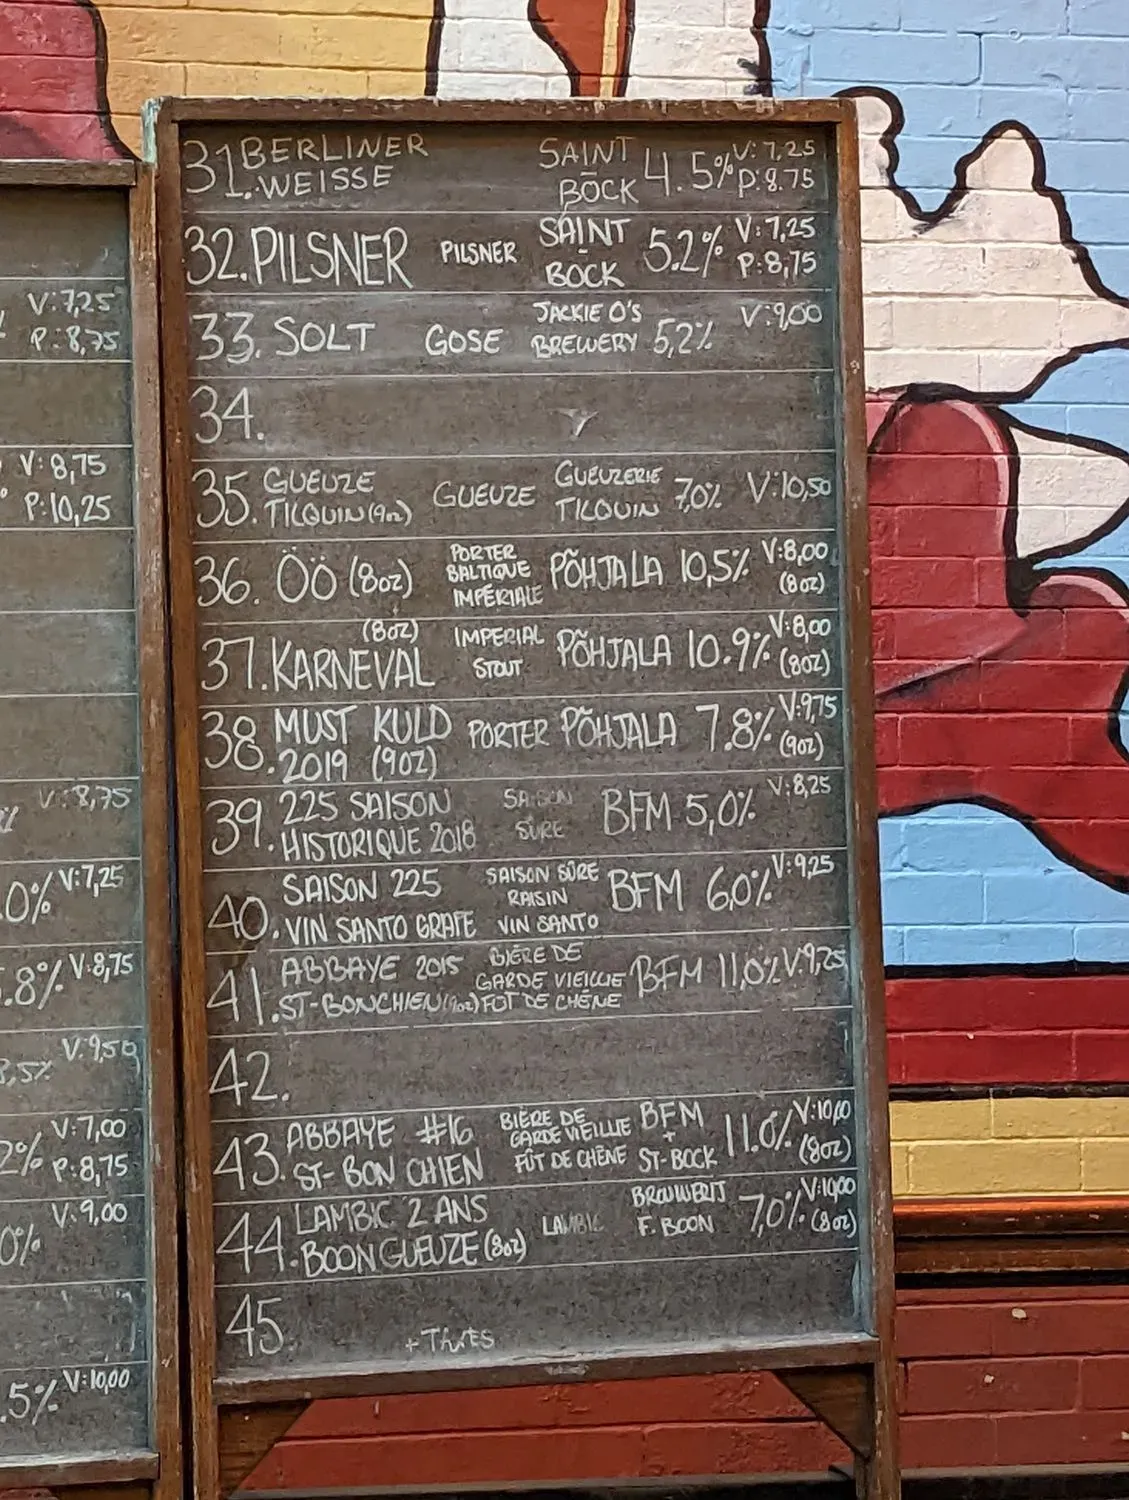 V:7,25
P:8,75
V:8,75
P:10,25
V:8,75
.0% V:7,25
.8% V:8,75
V:9,50
.5%
V:7,00
2% P:8,75
V:9,00
0%
V:10,00
.5%
31. BERLINER WEISSE SAINT BÖCK 4.5% V:7,25 P:8.75
32. PILSNER PILSNER SAINT BÖCK 5.2% V:7,25 P:8,75
33. SOLT GOSE JACKIE O'S BREWERY 5,2% V:9,00
34.
35. GUEUZE TILQUIN (9oz) GUEUZE GUEUZERIE TILQUIN 7,0% V:10,50
36. ÖÖ (8oz) PORTER BALTIQUE IMPÉRIALE PÕHJALA 10,5% V:8,00 (8oz)
37. KARNEVAL (8oz) IMPERIAL STOUT PÕHJALA 10.9% V:8,00 (8oz)
38. MUST KULD 2019 (9oz) PORTER PÕHJALA 7.8% V:9,75 (9oz)
39. 225 SAISON HISTORIQUE 2018 SAISON SÛRE BFM 5,0% V:8,25
40. SAISON 225 VIN SANTO GRAPE SAISON SÛRE RAISIN VIN SANTO BFM 6,0% V:9,25
41. ABBAYE 2015 ST-BONCHIEN (9oz) BIÈRE DE GARDE VIEILLIE FÛT DE CHÊNE BFM 11,0% V:9,25
42.
43. ABBAYE #16 ST-BON CHIEN BIÈRE DE GARDE VIEILLIE FÛT DE CHÊNE BFM + ST-BOCK 11.0% V:10,00 (8oz)
44. LAMBIC 2 ANS BOON GUEUZE (8oz) LAMBIC BROUWERIJ F. BOON 7,0% V:10,00 (8oz)
45.
+ TAXES